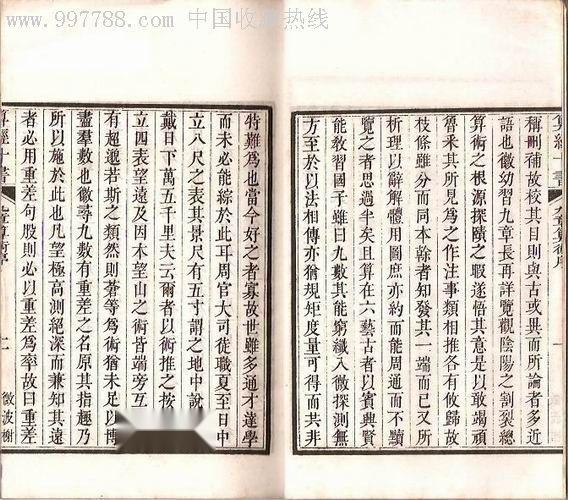 www.997788.com 中国收藏热线
算經十書 九章算術序 一
稱刪補故校其目則與古或異而所論者多近
語也徽幼習九章長再詳覽觀陰陽之割裂總
算術之根源探賾之暇遂悟其意是以敢竭頑
魯采其所見爲之作注事類相推各有攸歸故
枝條雖分而同本榦者知發其一端而已又所
析理以辭解體用圖庶亦約而能周通而不黷
覽之者思過半矣且算在六藝古者以賓興賢
能教習國子雖曰九數其能窮纖入微探測無
方至於以法相傳亦猶規矩度量可得而共非
特難爲也當今好之者寡故世雖多通才達學
而未必能綜於此耳周官大司徒職夏至日中
立八尺之表其景尺有五寸謂之地中說
戴日下萬五千里夫云爾者以術推之按
立四表望遠及因木望山之術皆端旁互
有超邈若斯之類然則蒼等爲術猶未足以博
盡羣數也徽尋九數有重差之名原其指趣乃
所以施於此也凡望極高測絕深而兼知其遠
者必用重差句股則必以重差爲率故曰重差
算經十書 九章算術序 二 微波榭